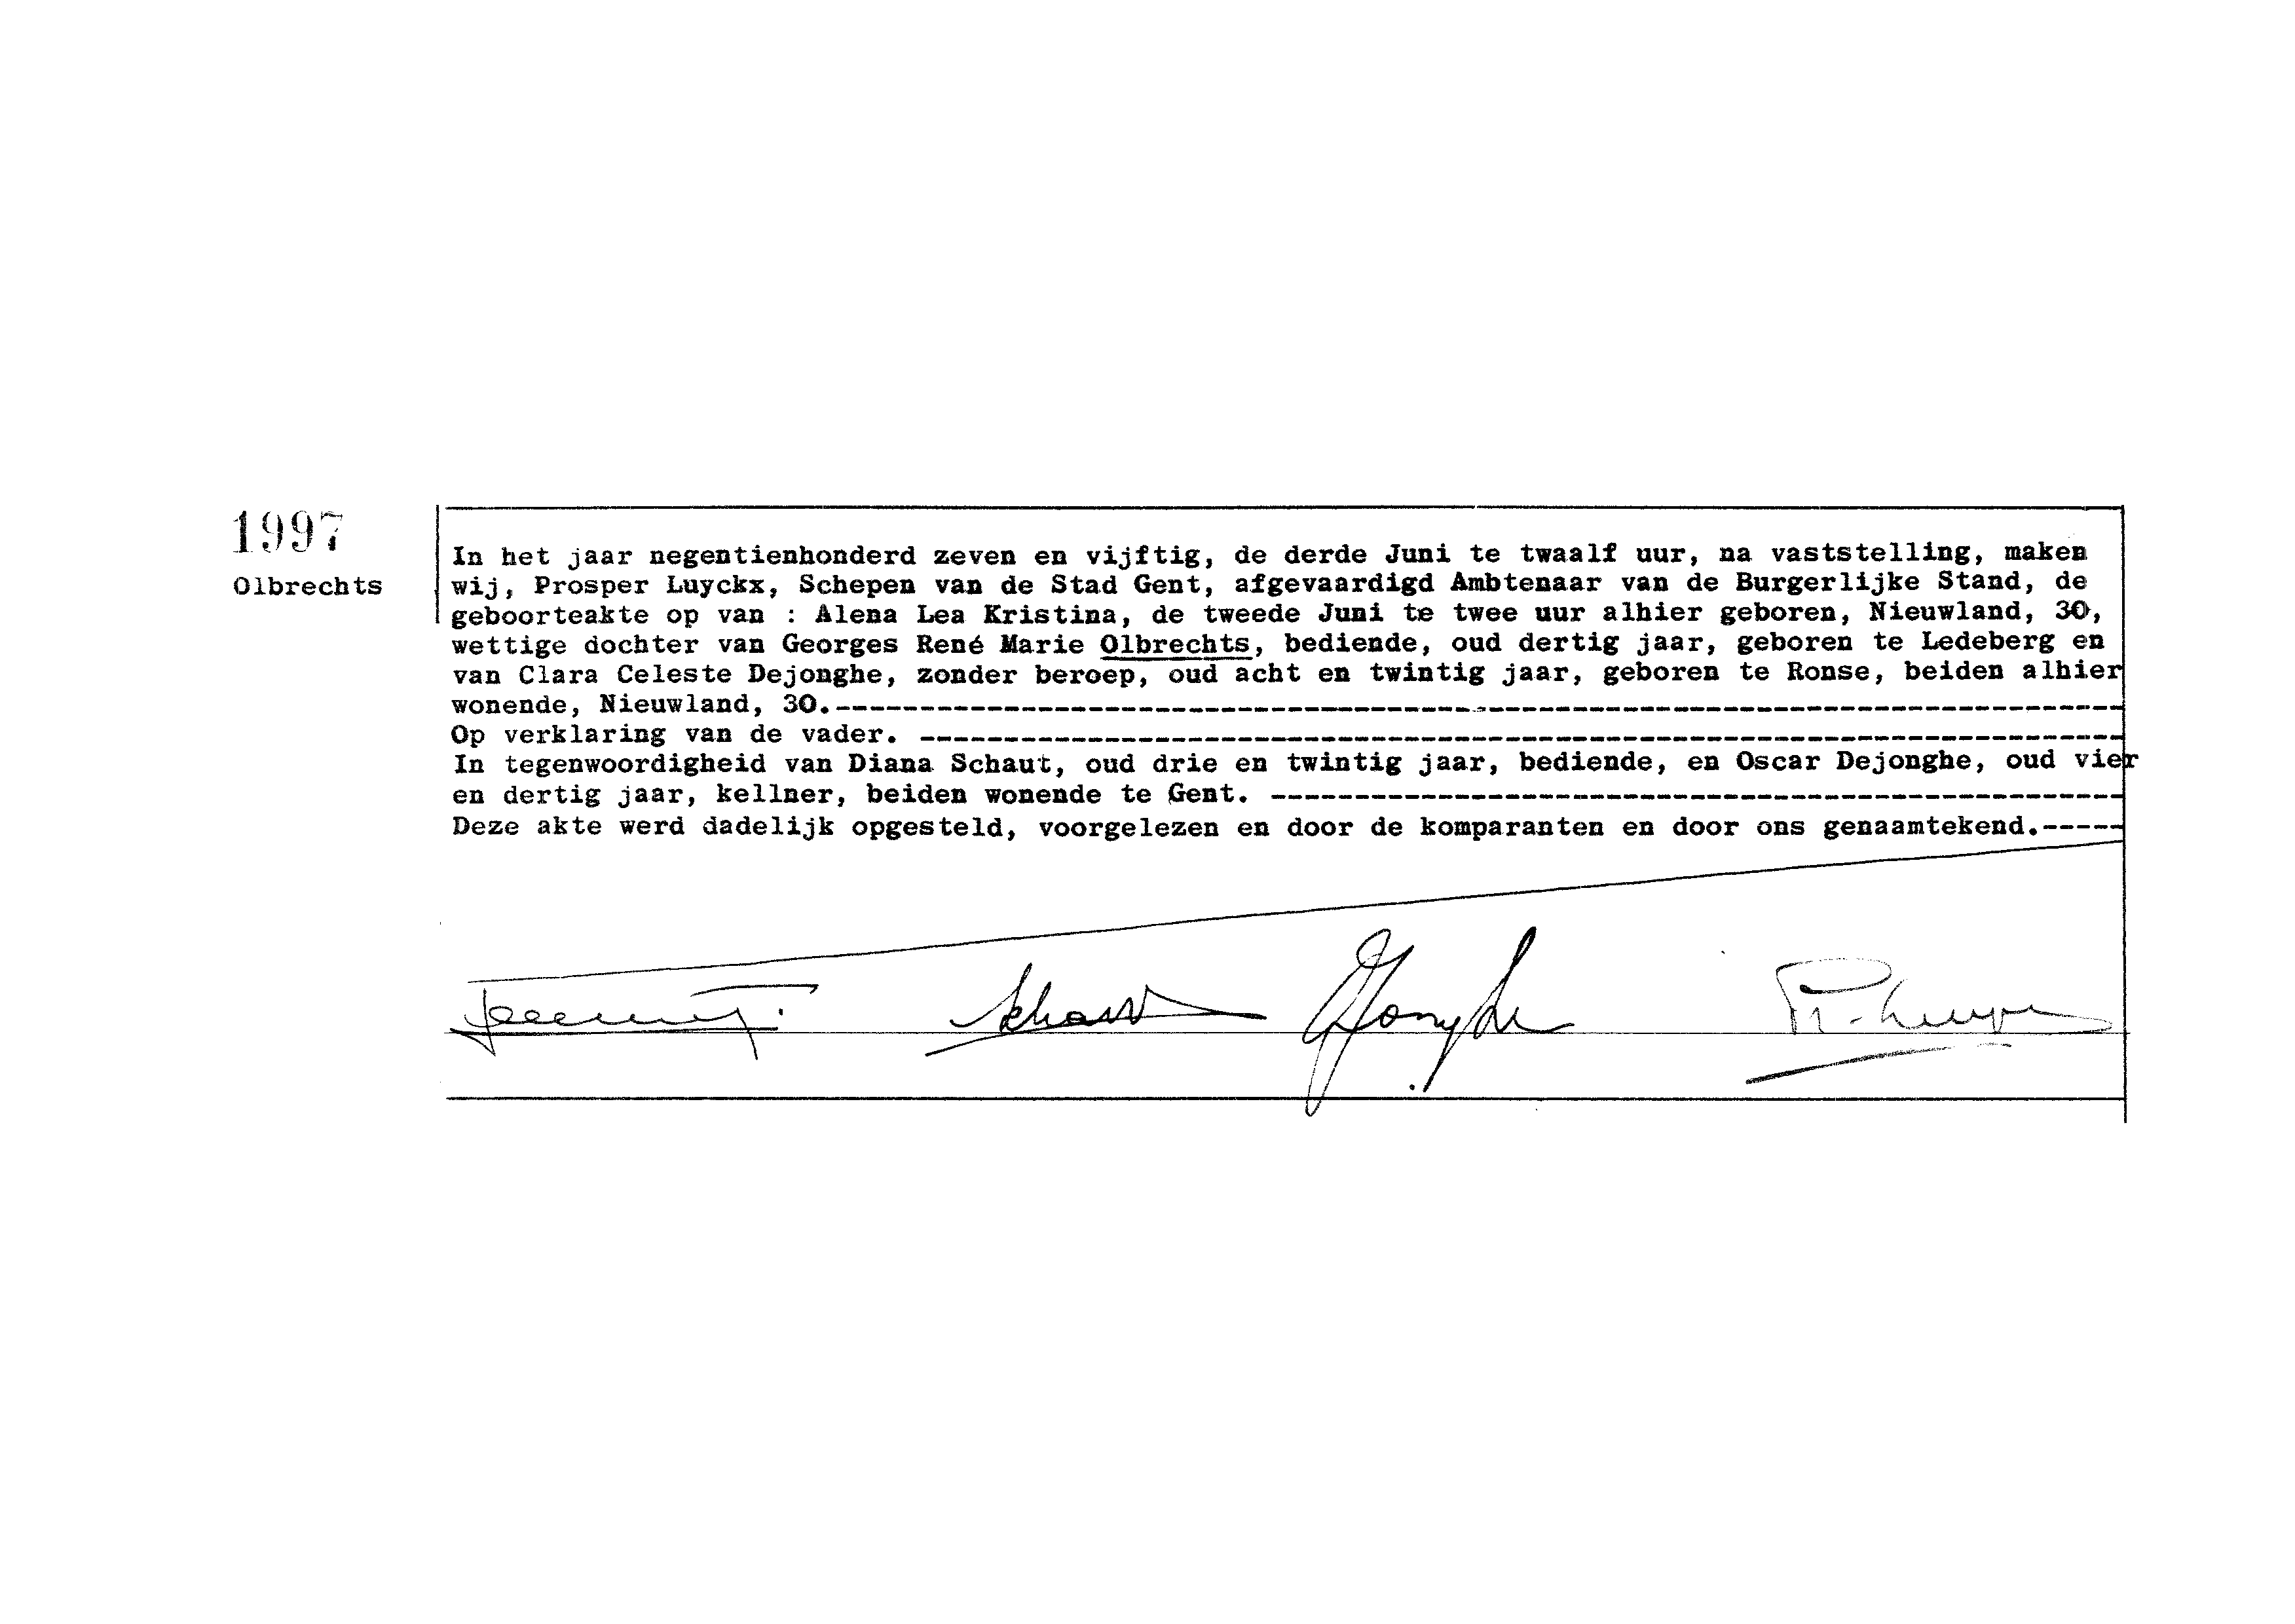 1997
Olbrechts
In het jaar negentienhonderd zeven en vijftig, de derde Juni te twaalf uur, na vaststelling, maken
wij, Prosper Luyckx, Schepen van de Stad Gent, afgevaardigd Ambtenaar van de Burgerlijke Stand, de
geboorteakte op van : Alena Lea Kristina, de tweede Juni te twee uur alhier geboren, Nieuwland, 30,
wettige dochter van Georges René Marie Olbrechts, bediende, oud dertig jaar, geboren te Ledeberg en
van Clara Celeste Dejonghe, zonder beroep, oud acht en twintig jaar, geboren te Ronse, beiden alhier
wonende, Nieuwland, 30.
Op verklaring van de vader.
In tegenwoordigheid van Diana Schaut, oud drie en twintig jaar, bediende, en Oscar Dejonghe, oud vier
en dertig jaar, kellner, beiden wonende te Gent.
Deze akte werd dadelijk opgesteld, voorgelezen en door de komparanten en door ons genaamtekend.
Schaut